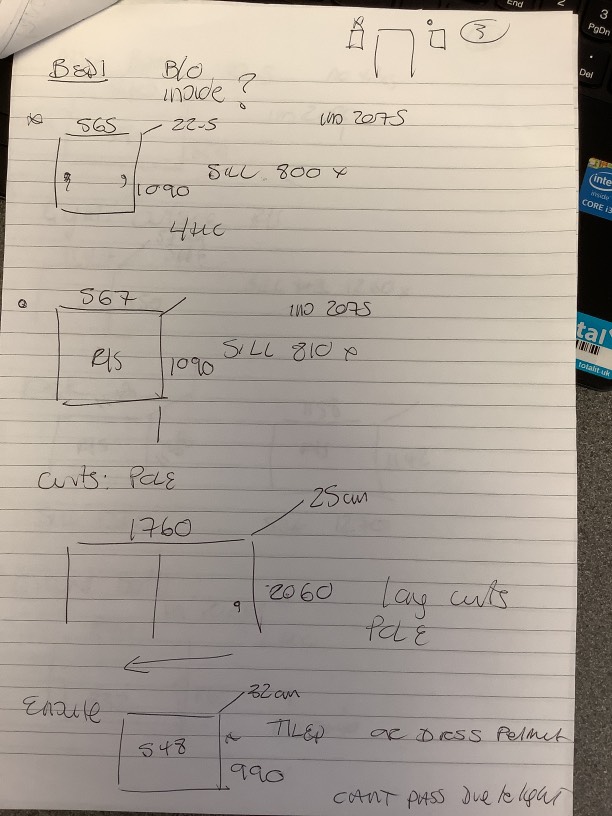 3
BED1 B/O
inside?
565 22-5 2075
1090 SILL 800 x
4HC
567 2075
R/S 1090 SILL 810 x
Curts: POLE
25cm
1760
2060 Long curts
POLE
Ensuite 32cm
548 TILED OR DRESS Pelmet
990
CANT pass Due to light
End
3
PgDn
.
Del
inte
inside
CORE i3
tal
totalit uk